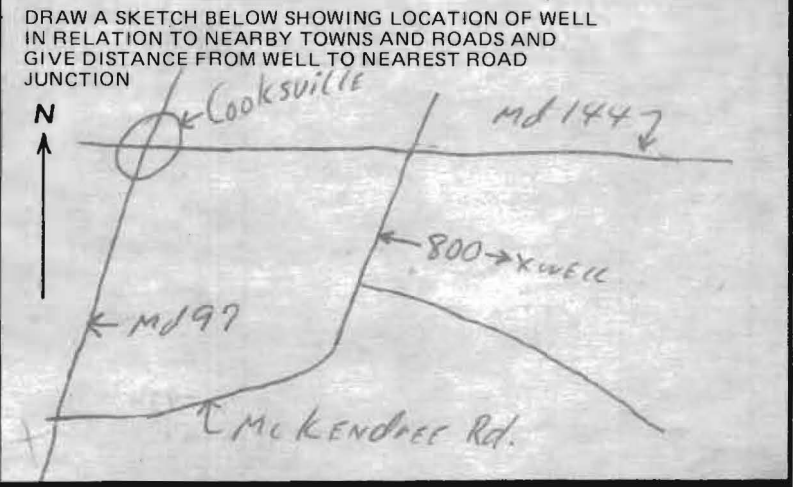 DRAW A SKETCH BELOW SHOWING LOCATION OF WELL
IN RELATION TO NEARBY TOWNS AND ROADS AND
GIVE DISTANCE FROM WELL TO NEAREST ROAD
JUNCTION
Cooksville
N
Md 144
800 → X WELL
Md 97
McKENDREE Rd.